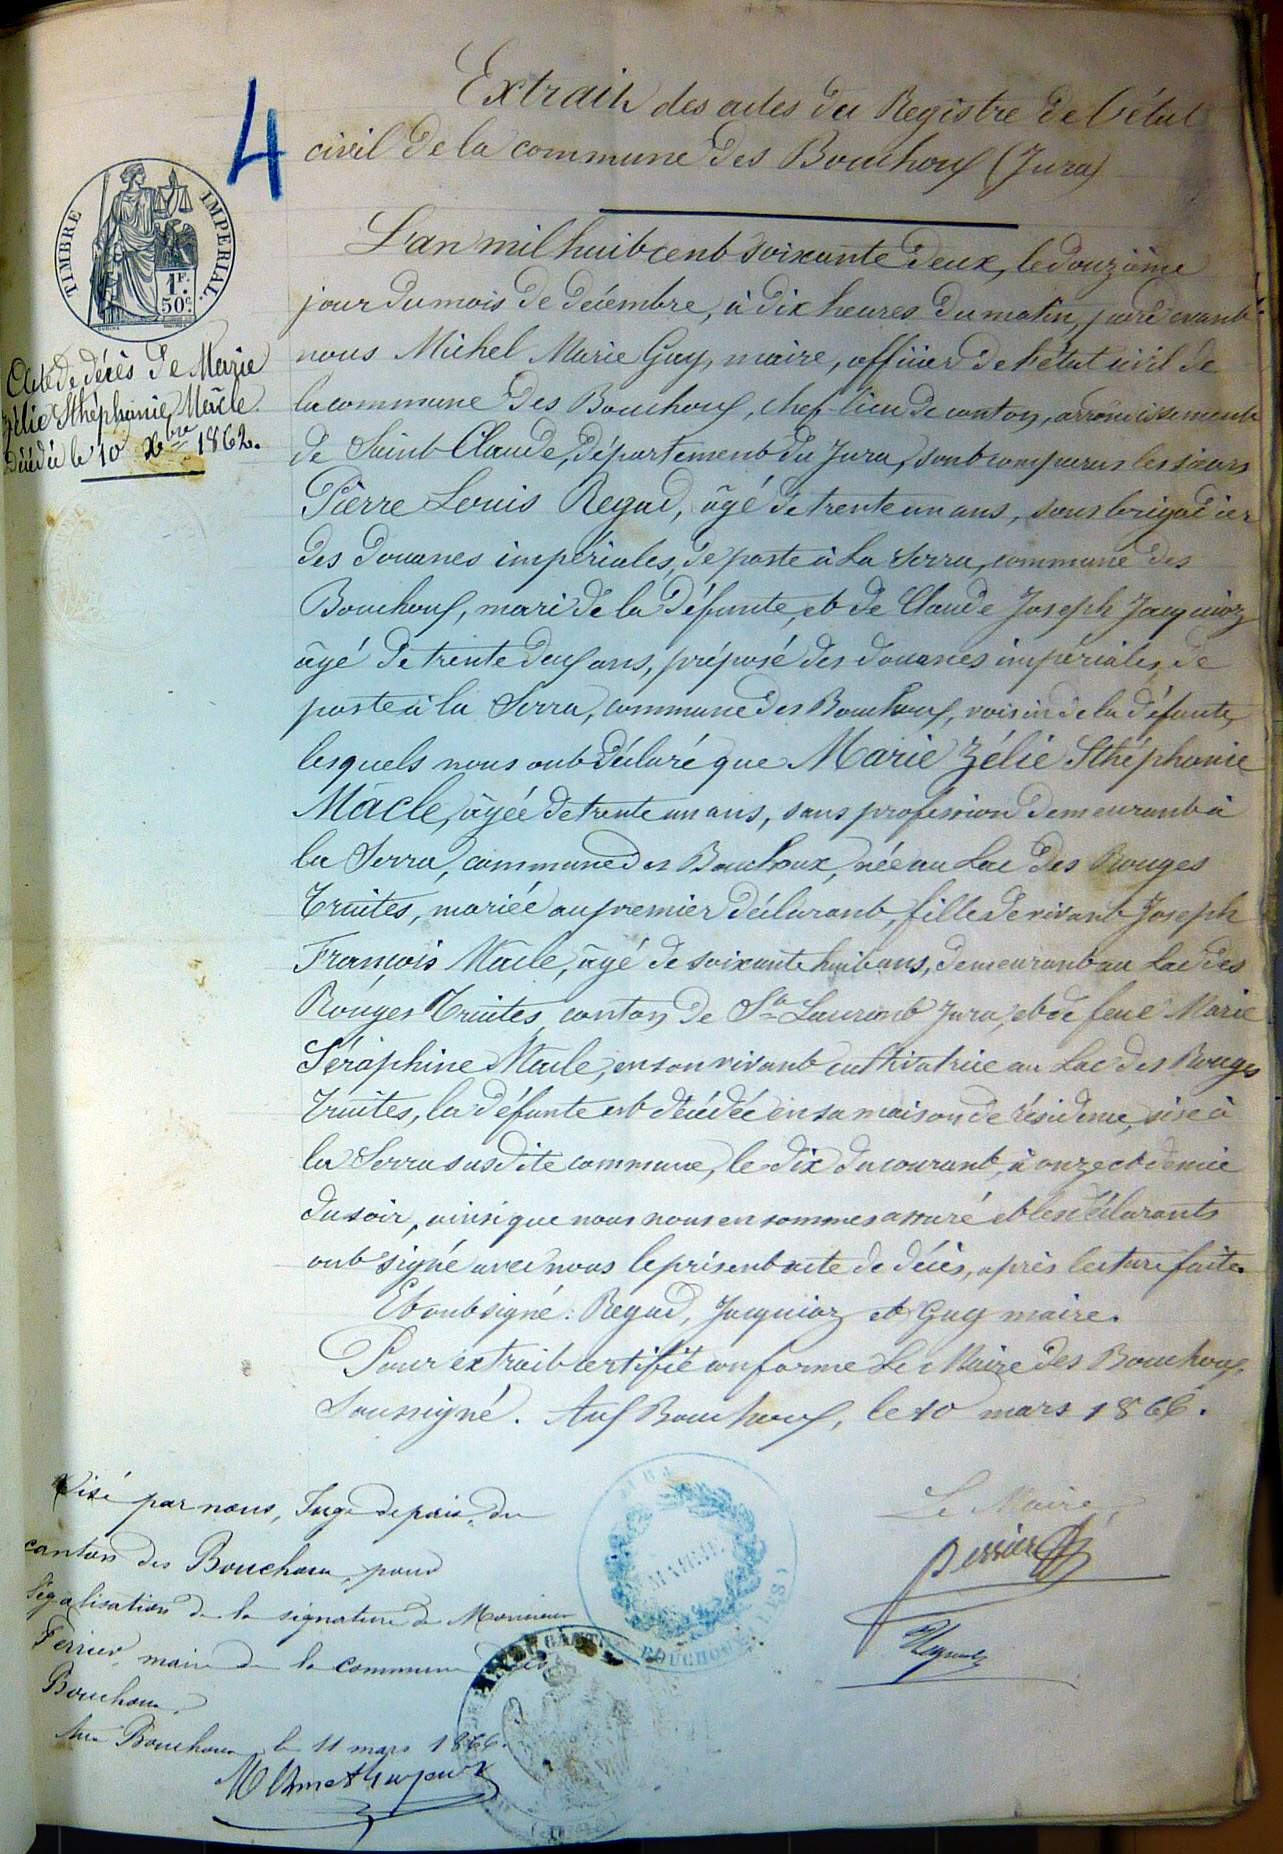 4
Extrait des actes du Registre de l'état
civil de la commune des Bouchoux (Jura)
TIMBRE IMPERIAL.
1F.
50c.
Acte de décès de Marie
Zélie Sthéphanie Mâcle.
Décédée le 10 Xbre 1862.
L'an mil huit cent soixante deux, le douzième
jour du mois de décembre, à dix heures du matin, pardevant
nous Michel Marie Guy, maire, officier de l'état civil de
la commune des Bouchoux, chef-lieu de canton, arrondissement
de Saint Claude, département du Jura, sont comparus les sieurs
Pierre Louis Regad, âgé de trente un ans, sous brigadier
des douanes impériales, de poste à La Serra, commune des
Bouchoux, mari de la défunte, et de Claude Joseph Jacquioz
âgé de trente deux ans, préposé des douanes impériales, de
poste à la Serra, commune des Bouchoux, voisin de la défunte,
lesquels nous ont déclaré que Marie Zélie Sthéphanie
Mâcle, âgée de trente un ans, sans profession demeurant à
la Serra, commune des Bouchoux, née au Lac des Rouges
Truites, mariée au premier déclarant, fille de vivant Joseph
François Mâcle, âgé de soixante huit ans, demeurant au Lac des
Rouges Truites, canton de St Laurent Jura, et de feue Marie
Séraphine Macle, en son vivant cultivatrice au Lac des Rouges
Truites, la défunte est décédée en sa maison de résidence, sise à
la Serra susdite commune, le dix du courant, à onze et demie
du soir, ainsi que nous nous en sommes assuré et les déclarants
ont signé avec nous le présent acte de décès, après lecture faite.
Et ont signé : Regad, Jacquioz et Guy maire.
Pour extrait certifié conforme Le Maire des Bouchoux,
Soussigné. Aux Bouchoux, le 10 mars 1866.
Le Maire,
Perrier
MAIRIE
BOUCHOUX
Visé par nous, Juge de paix du
canton des Bouchoux, pour
légalisation de la signature de Monsieur
Perrier, maire de la commune des
Bouchoux.
Aux Bouchoux, le 11 mars 1866.